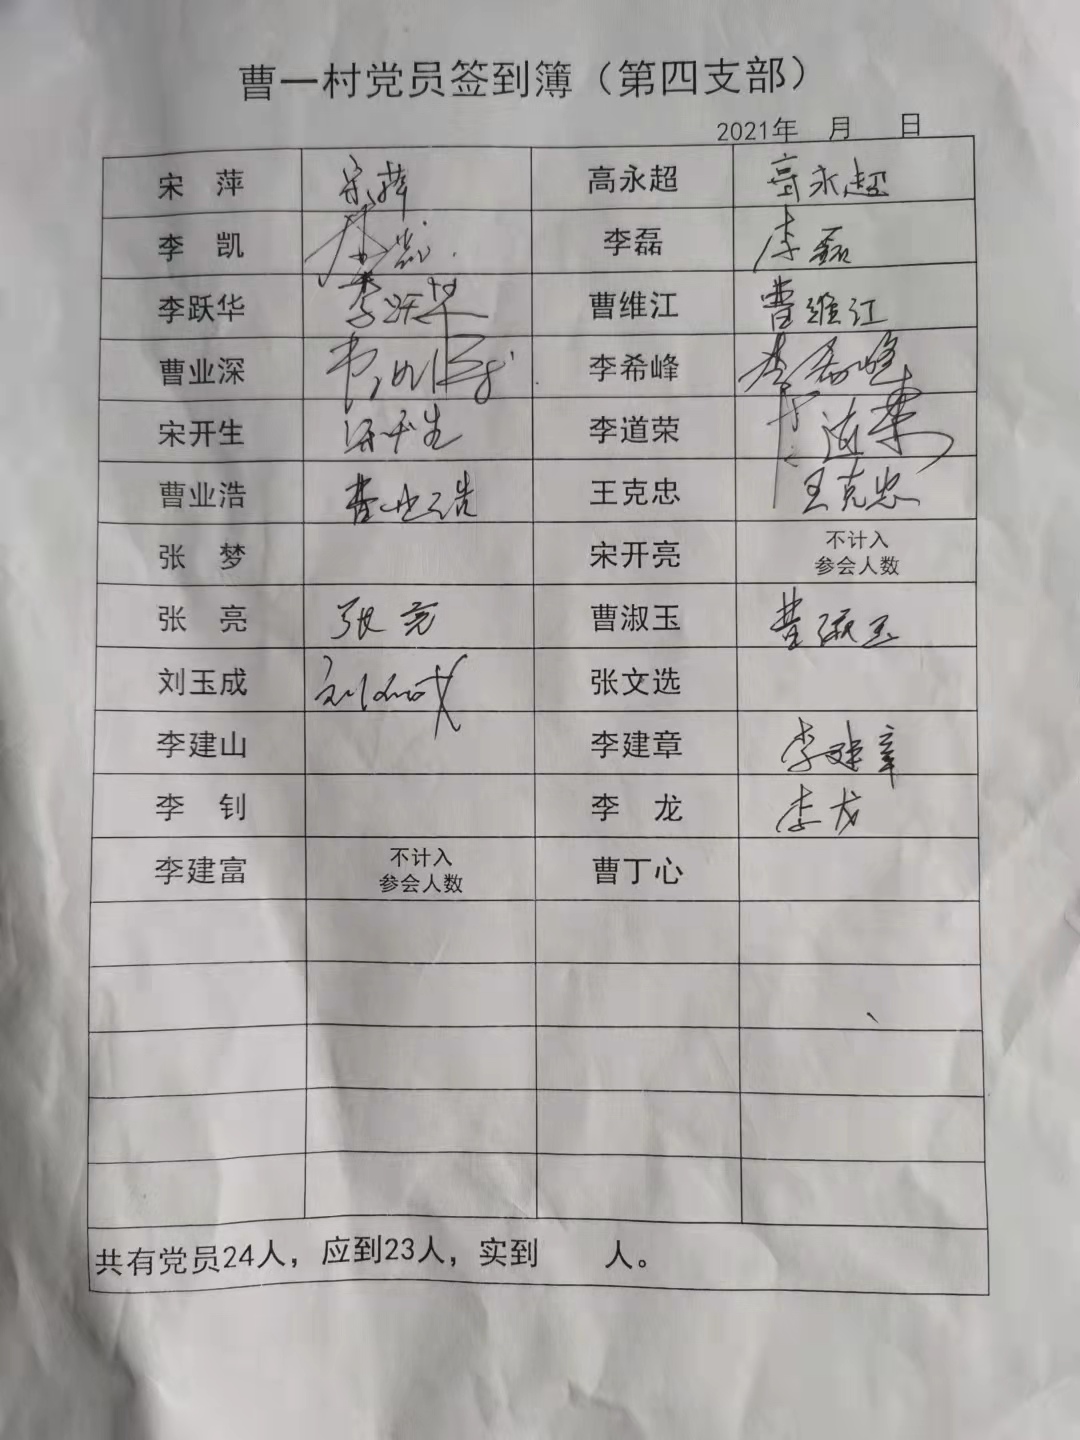 曹一村党员签到簿（第四支部）
2021年 月 日
宋 萍 宋萍 高永超 高永超
李 凯 李凯 李磊 李磊
李跃华 李跃华 曹维江 曹维江
曹业深 李希峰 李希峰
宋开生 宋开生 李道荣 李道荣
曹业浩 曹业浩 王克忠 王克忠
张 梦 宋开亮 不计入
参会人数
张 亮 张亮 曹淑玉 曹淑玉
刘玉成 刘玉成 张文选
李建山 李建章 李建章
李 钊 李 龙 李龙
李建富 不计入
参会人数 曹丁心
共有党员24人，应到23人，实到 人。